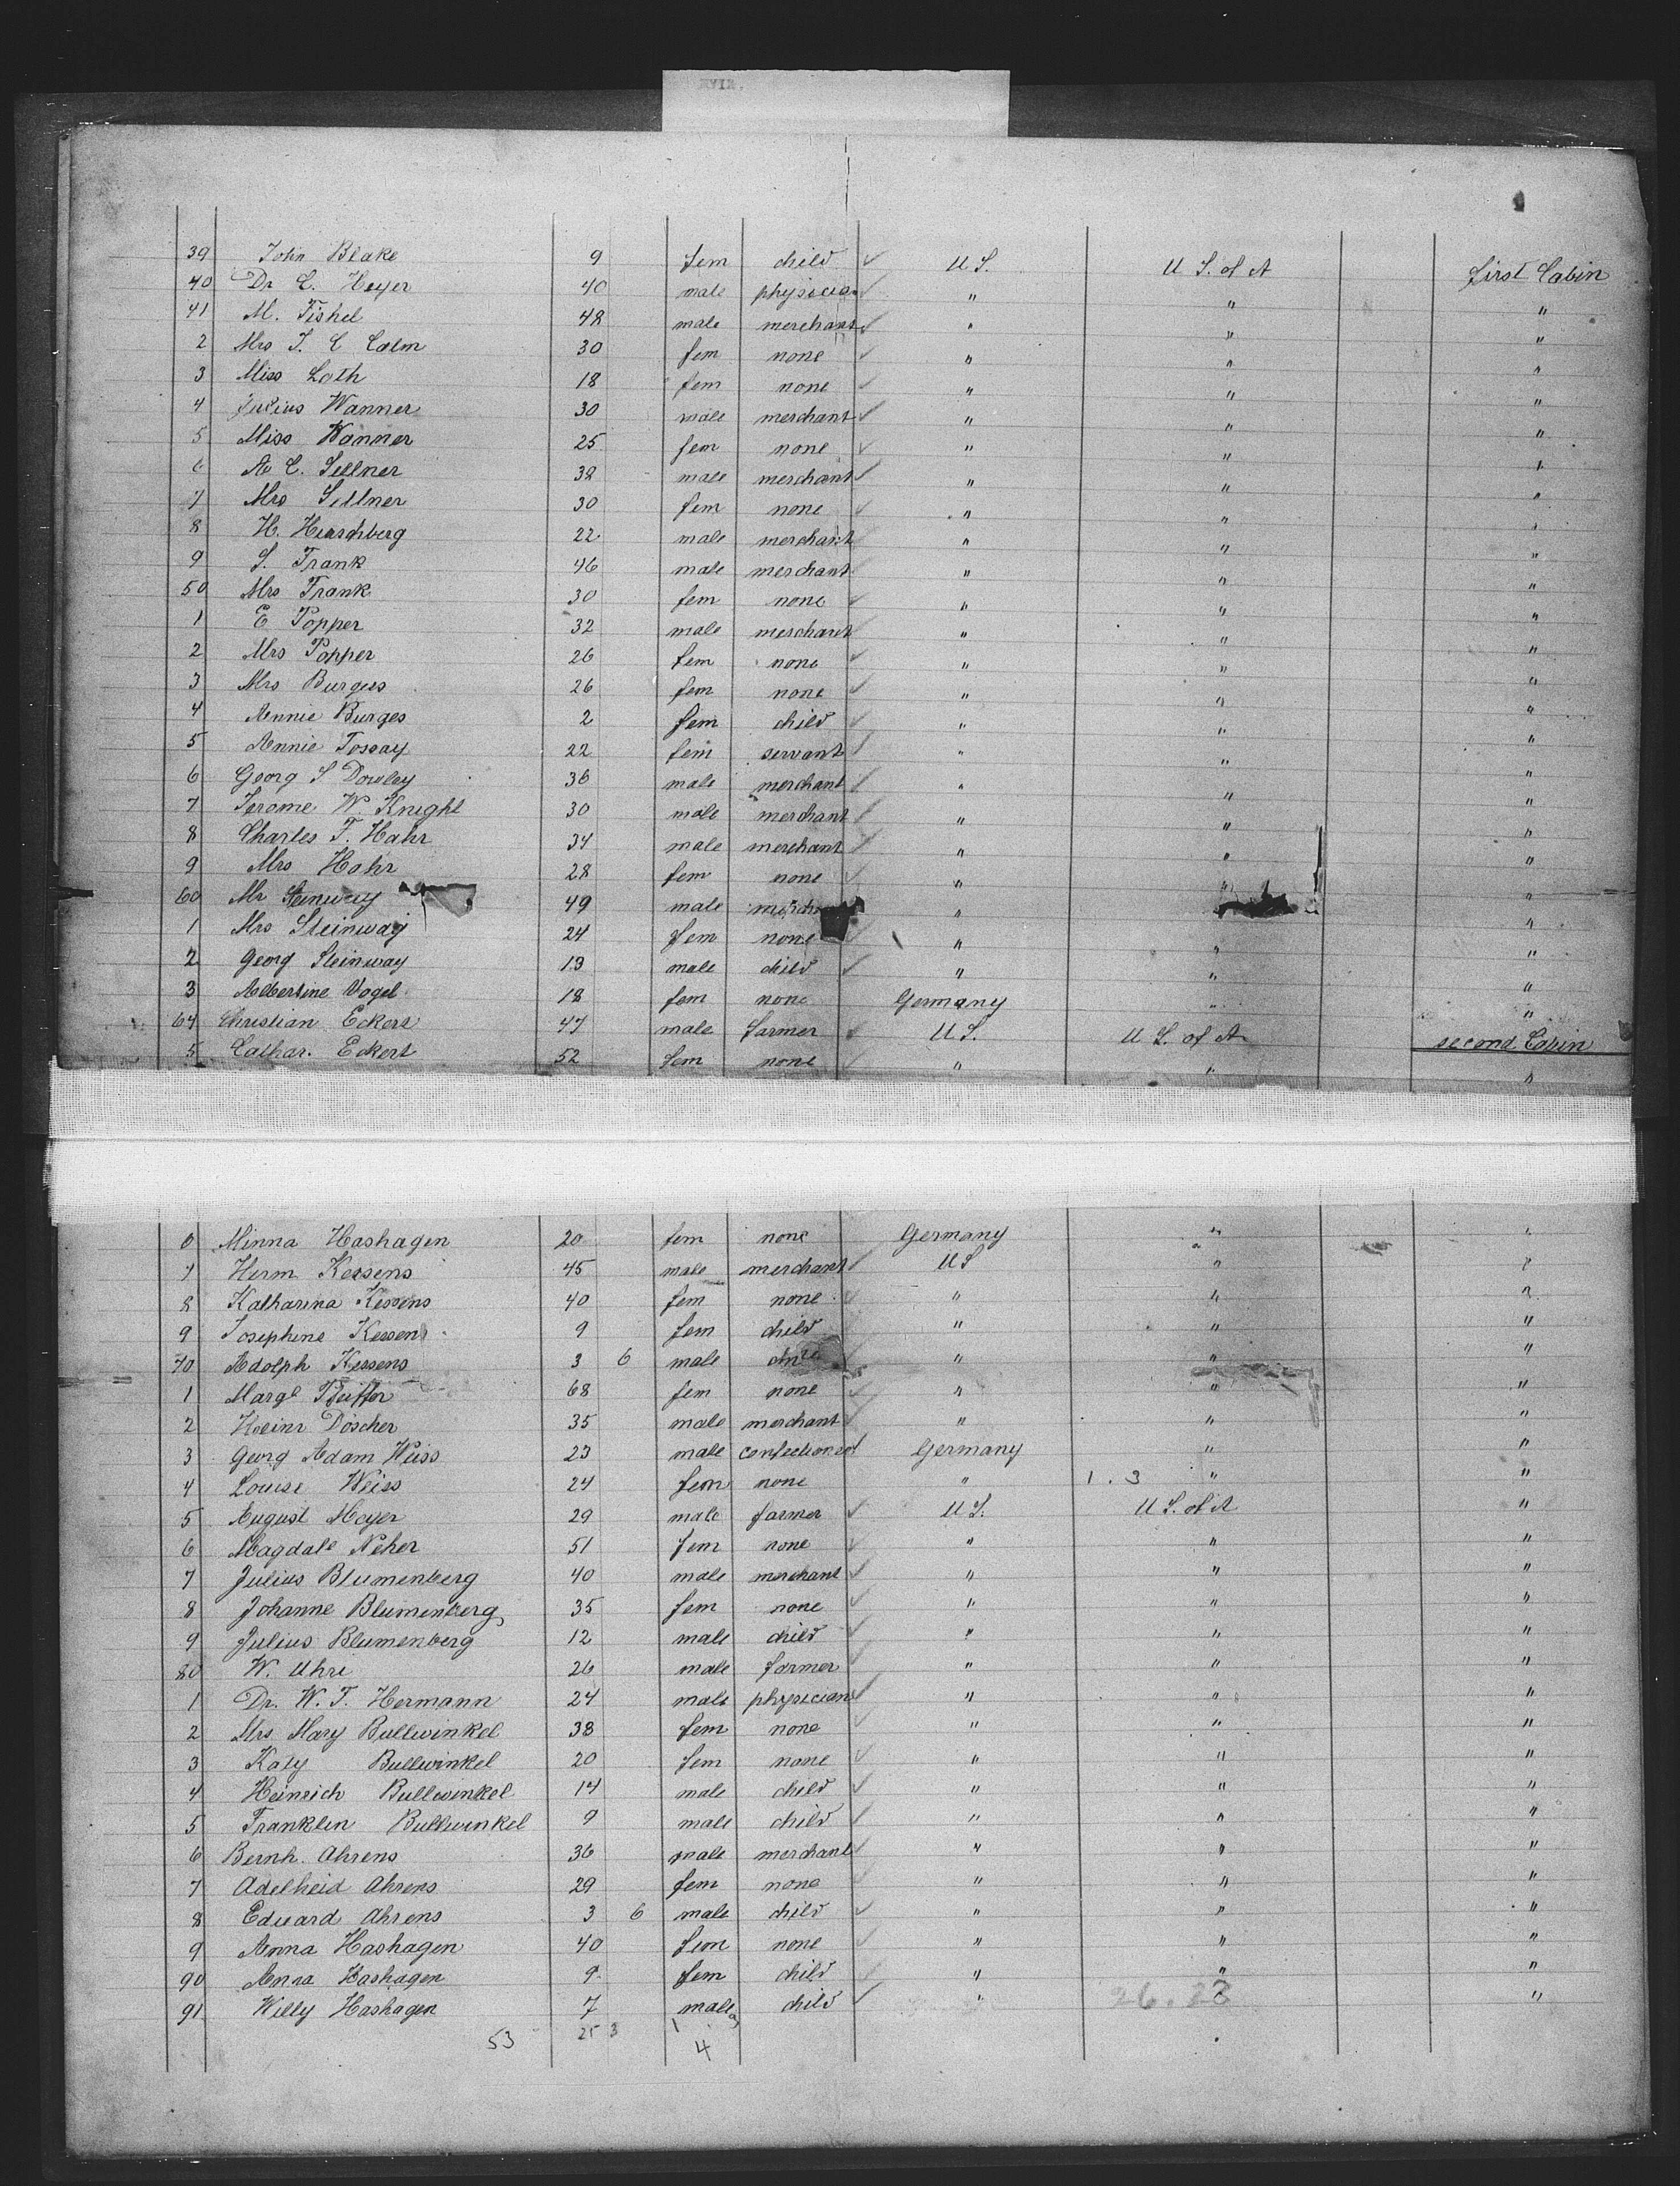 39 John Blake 9 fem child ✓ U S. U S. of A first Cabin
40 Dr C. Heyer 40 male physician ✓ " " "
41 M. Fishel 48 male merchant ✓ " " "
2 Mrs J. C Calm 30 fem none ✓ " " "
3 Miss Loth 18 fem none ✓ " " "
4 Julius Wanner 30 male merchant ✓ " " "
5 Miss Wanner 25 fem none ✓ " " "
6 A C. Sellner 38 male merchant ✓ " " "
7 Mrs Sellner 30 fem none ✓ " " "
8 H. Hirschberg 22 male merchant " " "
9 S. Frank 46 male merchant " " "
50 Mrs Frank 30 fem none ✓ " " "
1 E Popper 32 male merchant " " "
2 Mrs Popper 26 fem none ✓ " " "
3 Mrs Burgess 26 fem none ✓ " " "
4 Annie Burges 2 fem child ✓ " " "
5 Annie Tossay 22 fem servant ✓ " " "
6 Georg S Dowley 36 male merchant ✓ " " "
7 Jerome W. Knight 30 male merchant ✓ " " "
8 Charles F. Hahr 34 male merchant ✓ " " "
9 Mrs Hahr 28 fem none ✓ " " "
60 Mr Steinway 49 male " " "
1 Mrs Steinway 24 fem none ✓ " " "
2 Georg Steinway 13 male child ✓ " " "
3 Albertine Vogel 18 fem none Germany " "
64 Christian Eckert 47 male farmer ✓ U S. U S. of A second Cabin
5 Cathar. Eckert 52 fem none " " "
6 Minna Hashagen 20 fem none Germany " "
7 Herm Kessens 45 male merchant ✓ U S " "
8 Katharina Kessens 40 fem none ✓ " " "
9 Josephine Kessens 9 fem child ✓ " " "
70 Adolph Kessens 3 6 male child ✓ " " "
1 Margt Pfeiffer 68 fem none ✓ " " "
2 Heinr Döscher 35 male merchant ✓ " " "
3 Georg Adam Weiss 23 male confectioner Germany " "
4 Louise Weiss 24 fem none " 1.3 " "
5 August Meyer 29 male farmer ✓ U S. U S. of A "
6 Magdale Neher 51 fem none ✓ " " "
7 Julius Blumenberg 40 male merchant ✓ " " "
8 Johanne Blumenberg 35 fem none ✓ " " "
9 Julius Blumenberg 12 male child ✓ " " "
80 W. Uhri 26 male farmer ✓ " " "
1 Dr. W. F. Hermann 24 male physician ✓ " " "
2 Mrs Mary Bullwinkel 38 fem none ✓ " " "
3 Katy Bullwinkel 20 fem none ✓ " " "
4 Heinrich Bullwinkel 14 male child ✓ " " "
5 Franklin Bullwinkel 9 male child ✓ " " "
6 Bernh. Ahrens 36 male merchant ✓ " " "
7 Adelheid Ahrens 29 fem none ✓ " " "
8 Eduard Ahrens 3 6 male child ✓ " " "
9 Anna Hashagen 40 fem none ✓ " " "
90 Anna Hashagen 9 fem child ✓ " " "
91 Willy Hashagen 7 male child ✓ " 26.28 "
53 25 3 1 4